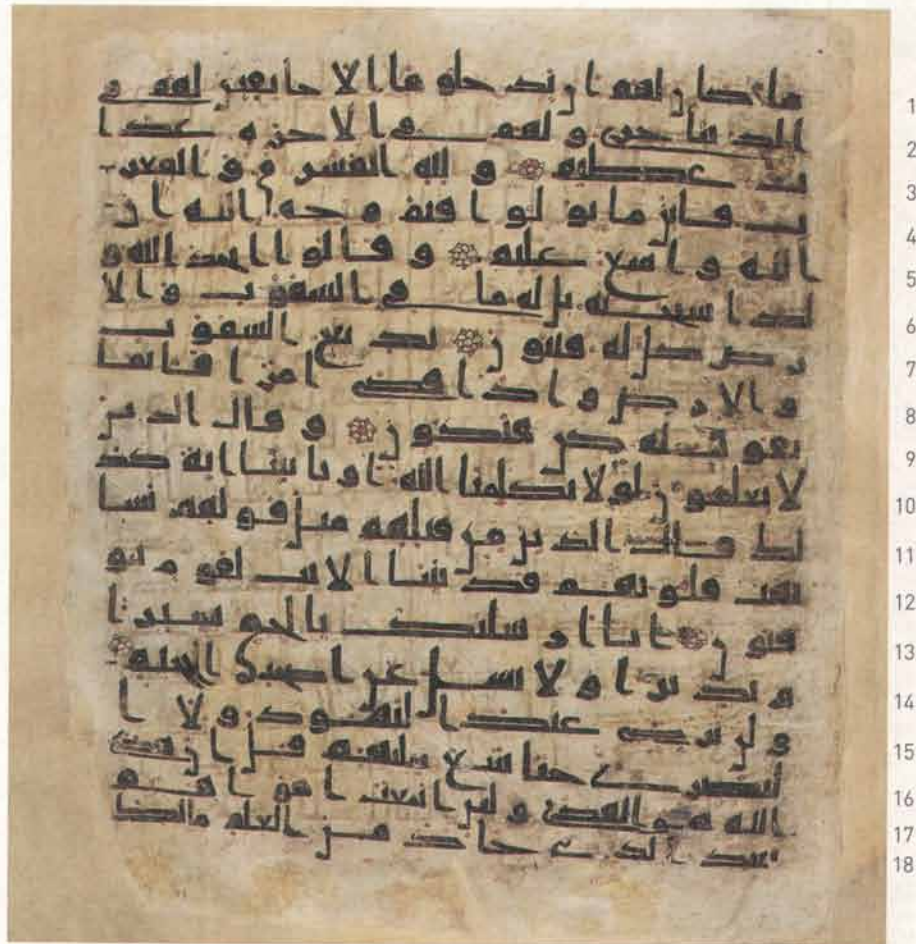 1 ما كان لهم ان يدخلوها الا خايفين لهم في
2 الدنيا خزي و لهم في الاخرة عذا
3 ب عظيم و لله المشرق و المغر
4 ب فاينما تولوا فثم وجه الله ان
5 الله واسع عليم و قالوا اتخذ الله و
6 لدا سبحنه بل له ما في السموت والا
7 رض كل له قنتون بديع السموت
8 و الارض و اذا قضى امرا فانما
9 يقول له كن فيكون و قال الذين
10 لا يعلمون لولا يكلمنا الله او تاتينا اية كذ
11 لك قال الذين من قبلهم مثل قولهم تشا
12 بهت قلوبهم قد بينا الايت لقوم يو
13 قنون انا ارسلنك بالحق بشيرا
14 و نذيرا و لا تسل عن اصحب الجحيم
15 و لن ترضى عنك اليهود ولا ا
16 لنصرى حتا تتبع ملتهم قل ان هدى
17 الله هو الهدى و لين اتبعت اهواهم
18 بعد الذي جاك من العلم مالك ا